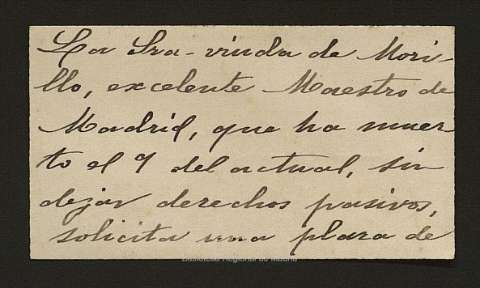 La Sra viuda de Mori-
llo, excelente Maestro de
Madrid, que ha muer
to el 9 del actual, sin
dejar derechos pasivos,
solicita una plaza de
Biblioteca Regional de Madrid